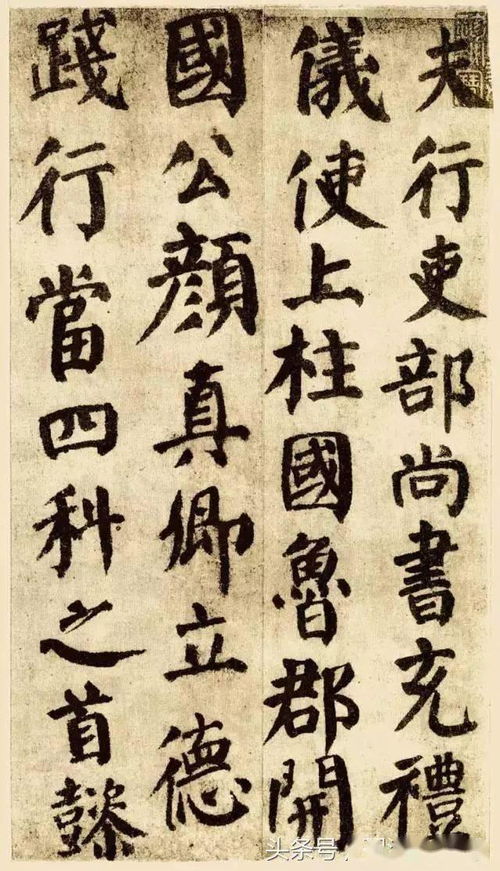 夫行吏部尚書充禮
儀使上柱國魯郡開
國公顔真卿立德
踐行當四科之首懿
头条号